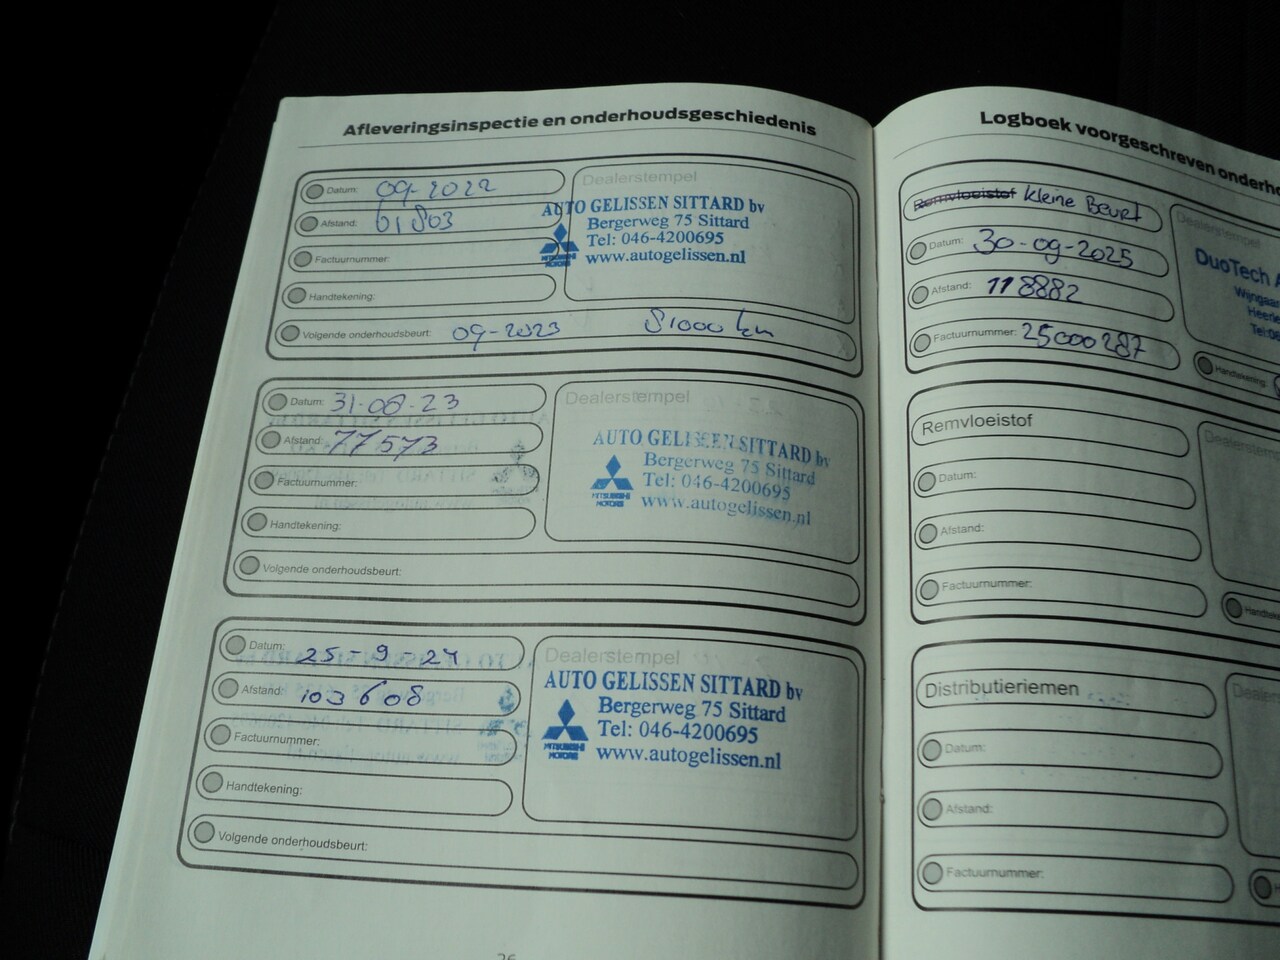 Afleveringsinspectie en onderhoudsgeschiedenis
Datum: 09-2022
Afstand: 61803
Factuurnummer:
Handtekening:
Volgende onderhoudsbeurt: 09-2023 81000 km
Dealerstempel
AUTO GELISSEN SITTARD bv
Bergerweg 75 Sittard
Tel: 046-4200695
www.autogelissen.nl
MITSUBISHI
MOTORS
Datum: 31-08-23
Afstand: 77573
Factuurnummer:
Handtekening:
Volgende onderhoudsbeurt:
Dealerstempel
AUTO GELISSEN SITTARD bv
Bergerweg 75 Sittard
Tel: 046-4200695
www.autogelissen.nl
MITSUBISHI
MOTORS
Datum: 25-9-24
Afstand: 103608
Factuurnummer:
Handtekening:
Volgende onderhoudsbeurt:
Dealerstempel
AUTO GELISSEN SITTARD bv
Bergerweg 75 Sittard
Tel: 046-4200695
www.autogelissen.nl
MITSUBISHI
MOTORS
Logboek voorgeschreven onderho
Remvloeistof Kleine Beurt
Datum: 30-09-2025
Afstand: 118882
Factuurnummer: 25000287
Dealerstempel
DuoTech
Wijngaa
Heerle
Handtekening:
Remvloeistof
Datum:
Afstand:
Factuurnummer:
Dealerst
Handteke
Distributieriemen
Datum:
Afstand:
Factuurnummer:
Deale